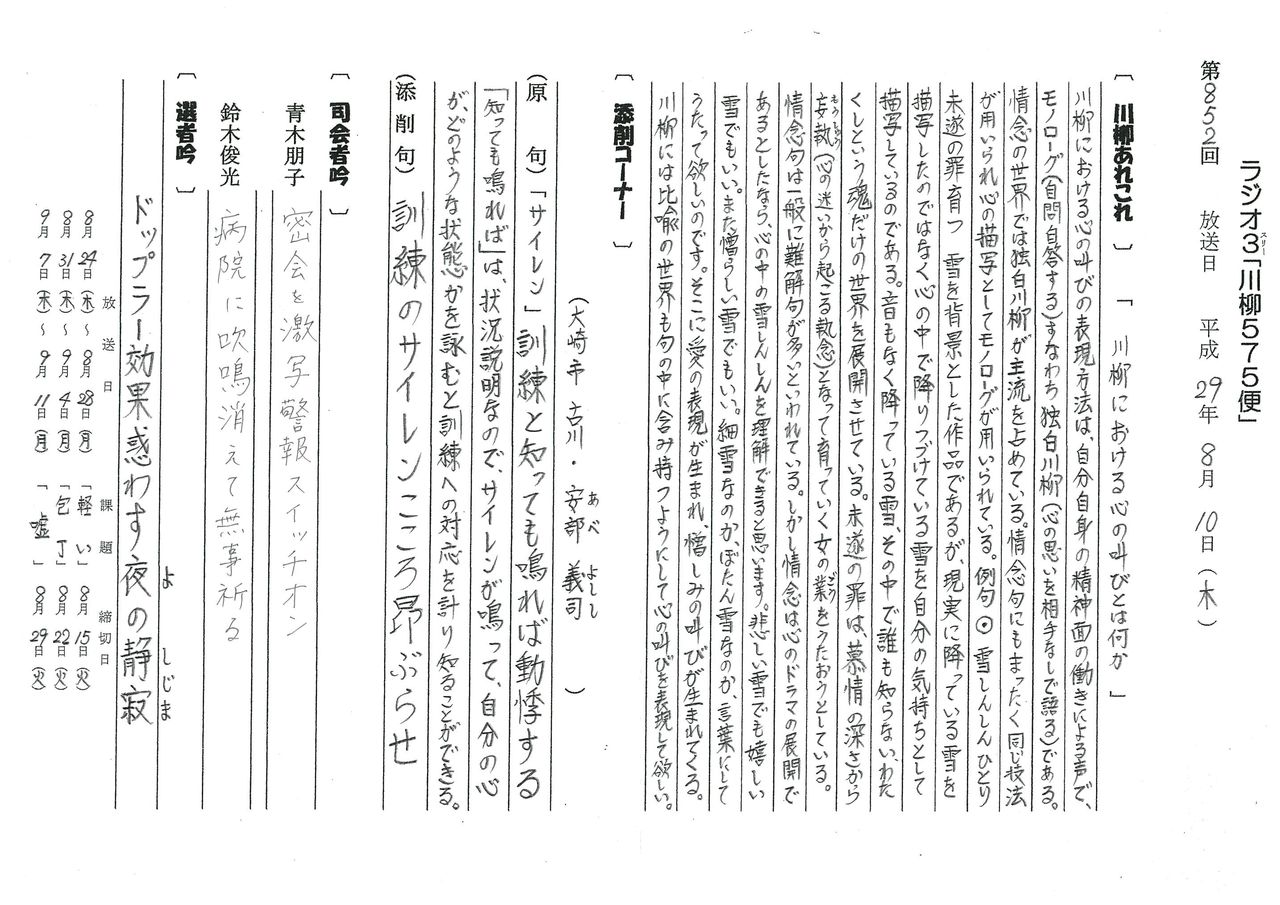 ラジオ3「川柳575便」
スリー
第852回 放送日 平成29年8月10日(木)
〔川柳あれこれ〕 「川柳における心の叫びとは何か」
川柳における心の叫びの表現方法は、自分自身の精神面の働きによる声で、
モノローグ(自問自答する)すなわち独白川柳(心の思いを相手なしで語る)である。
情念の世界では独白川柳が主流を占めている。情念句にもまったく同じ技法
が用いられ心の描写としてモノローグが用いられている。例句⊙雪しんしんひとり
未遂の罪育つ 雪を背景とした作品であるが、現実に降っている雪を
描写したのではなく心の中で降りつづけている雪を自分の気持ちとして
描写しているのである。音もなく降っている雪、その中で誰も知らない、わた
くしという魂だけの世界を展開させている。未遂の罪は、慕情の深さから
妄執(心の迷いから起こる執念)となって育っていく女の業をうたおうとしている。
もうしゅう
ごう
情念句は一般に難解句が多いといわれている。しかし情念は心のドラマの展開で
あるとしたなら、心の中の雪しんしんを理解できると思います。悲しい雪でも嬉しい
雪でもいい。また憎らしい雪でもいい。細雪なのか、ぼたん雪なのか、言葉にして
うたって欲しいのです。そこに愛の表現が生まれ、憎しみの叫びが生まれてくる。
川柳には比喩の世界も句の中に含み持つようにして心の叫びを表現して欲しい。
〔添削コーナー〕
(大崎市古川・安部 義司)
あべ よしし
(原 句)「サイレン」訓練と知っても鳴れば動悸する
「知っても鳴れば」は、状況説明なので、サイレンが鳴って、自分の心
が、どのような状態かを詠むと訓練への対応を計り知ることができる。
(添削句)訓練のサイレンこころ昂ぶらせ
〔司会者吟〕
青木朋子 密会を激写警報スイッチオン
鈴木俊光 病院に吹鳴消えて無事祈る
〔選者吟〕
ドップラー効果惑わす夜の静寂
よ しじま
放送日 課題 締切日
8月24日(木)~8月28日(月) 「軽い」 8月15日(火)
8月31日(木)~9月4日(月) 「包丁」 8月22日(火)
9月7日(木)~9月11日(月) 「嘘」 8月29日(火)